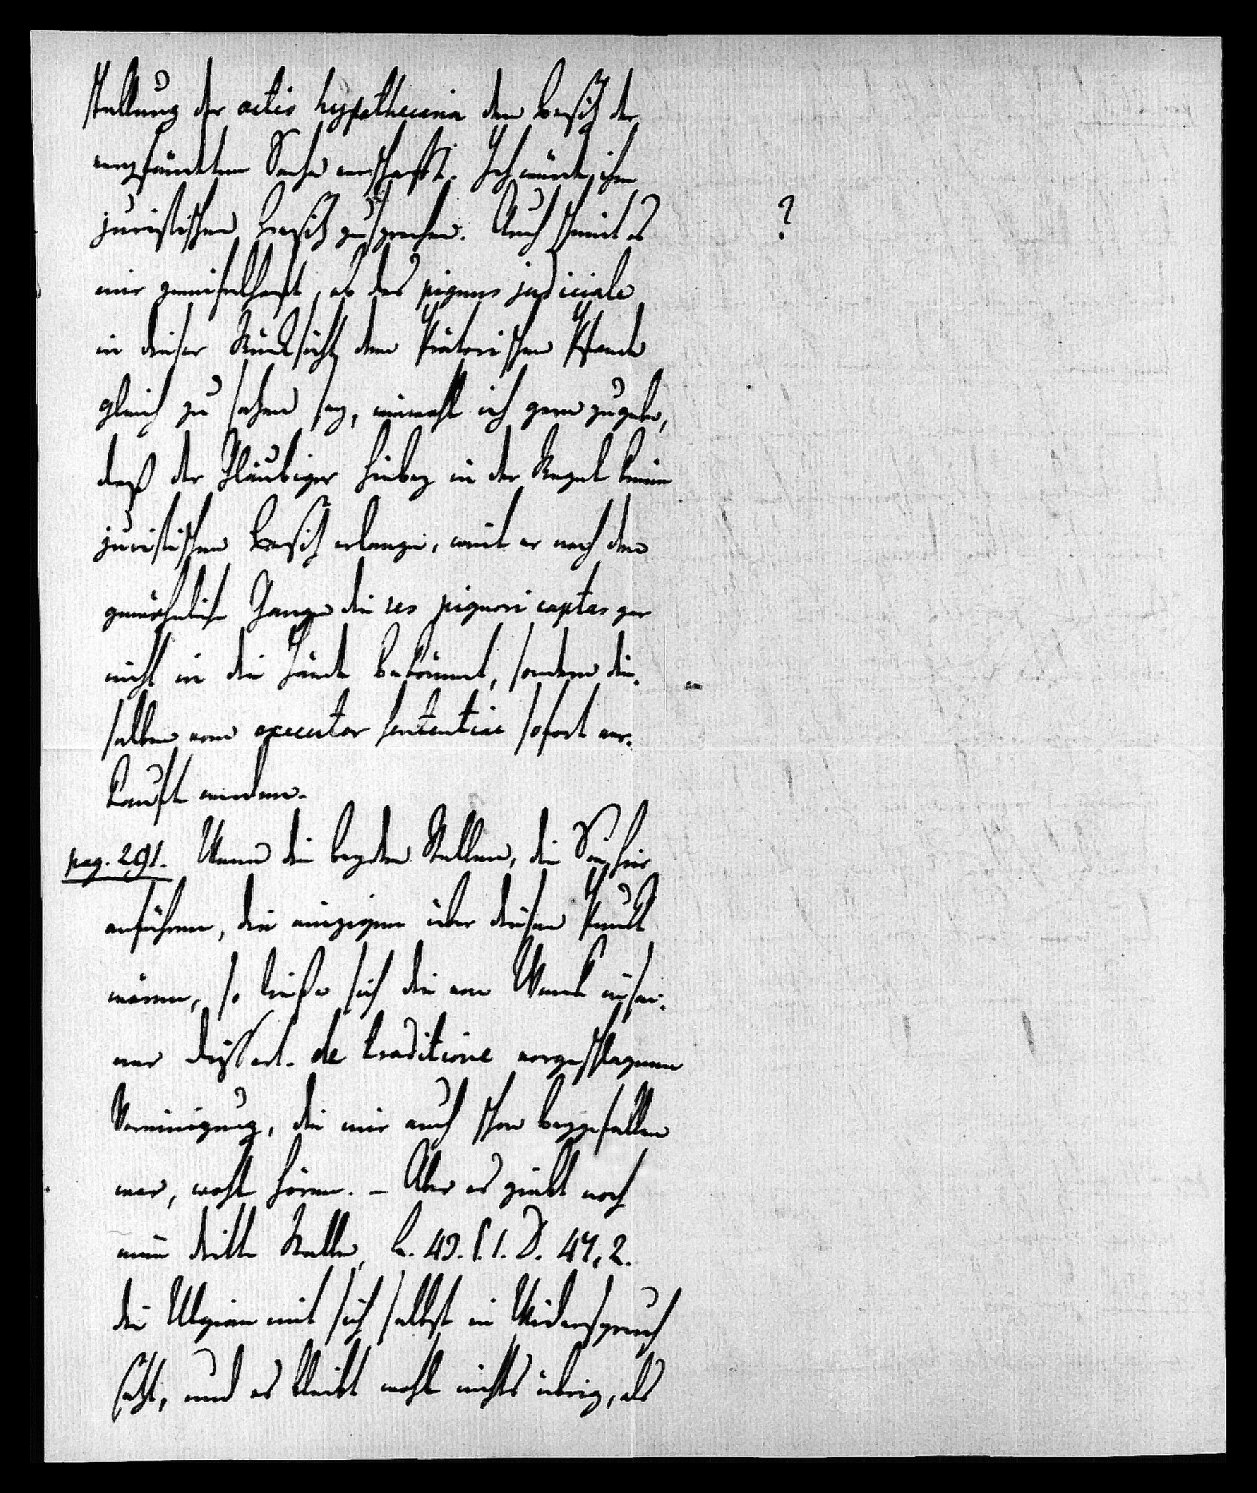 stellung der actio hypothecaria den Besitz der
verpfändeten Sache verschafft. Ich würde ihm
juristischen Besitz zusprechen. Auch scheint es
?
mir zweifelhaft, ob das pignus judiciale
in dieser Rücksicht dem Prätorischen Pfande
gleich zu sehen sey, wiewohl ich gern zugebe,
daß der Gläubiger hiebey in der Regel keinen
juristischen Besitz erlange, weil er nach dem
gewöhnlichen Gange die res pignori captas gar
nicht in die Hände bekömmt, sondern die-
selben vom executor sententiae sofort ver-
kauft werden.
pag. 291. Wenn die beyden Stellen, die Sie hier
anführen, die einzigen über diesen Punkt
wären, so ließe sich die von Wenck in sei-
ner Dissert. de traditione vorgeschlagene
Vereinigung, die mir auch schon beygefallen
war, wohl hören. – Aber es giebt noch
eine dritte Stelle, L. 43. §. 1. D. 47, 2.
die Ulpian mit sich selbst in Widerspruch
setzt, und es bleibt wohl nichts übrig, als